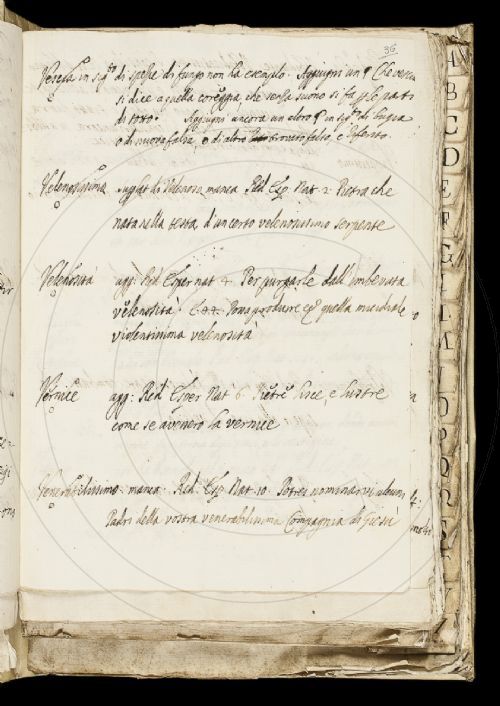 36
in sig.to di spesse di fungo non ha esempio. Aggiugni un ¶ Che
si dice a quella coreggia, che senza suono si fa
di sotto. Aggiugni ancora un altro ¶ in sig.to di bugia
o di nuova falsa, o di altro trovato falso, e
Velenosissima superlat: di Velenoso manca Red. Esp. Nat. 2. Pietra che
nata nella testa d'un certo velenosissimo serpente
Velenosità agg: Red. Esper nat 4. Per purgarle dall'imbevuta
velenosità produrre quella micidiale
violentissima velenosità
Vernice agg: Red. Esper Nat 6. Pietre lisce, e lustre
come se avessero la vernice
Venerabilissimo manca. Red. Esp. Nat. 10. Potrei nominarvi alcuni
Padri della vostra venerabilissima Compagnia di Giesù
A
B
C
D
E
F
G
I
L
M
N
O
P
Q
R
S